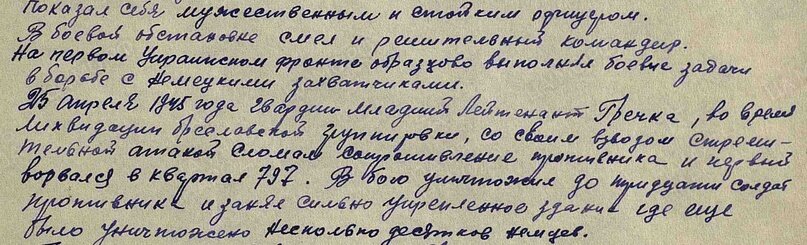 показал себя мужественным и стойким офицером.
В боевой обстановке смел и решительный командир.
На первом Украинском фронте образцово выполнял боевые задачи
в борьбе с немецкими захватчиками.
25 апреля 1945 года гвардии младший лейтенант Гречка, во время
ликвидации бреславской группировки, со своим взводом стреми-
тельной атакой сломал сопротивление противника и первый
ворвался в квартал 797. В бою уничтожил до тридцати солдат
противника и занял сильно укрепленное здание где еще
было уничтожено несколько десятков немцев.